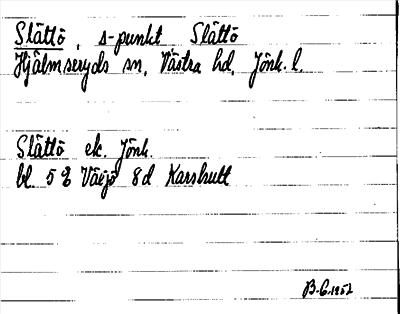 Slättö, s-punkt Slättö
Hjälmseryds sn, Västra hd, Jönk. l.
Slättö ek. Jönk.
bl. 5 E Växjö 8d Karshult
B.E. 1952